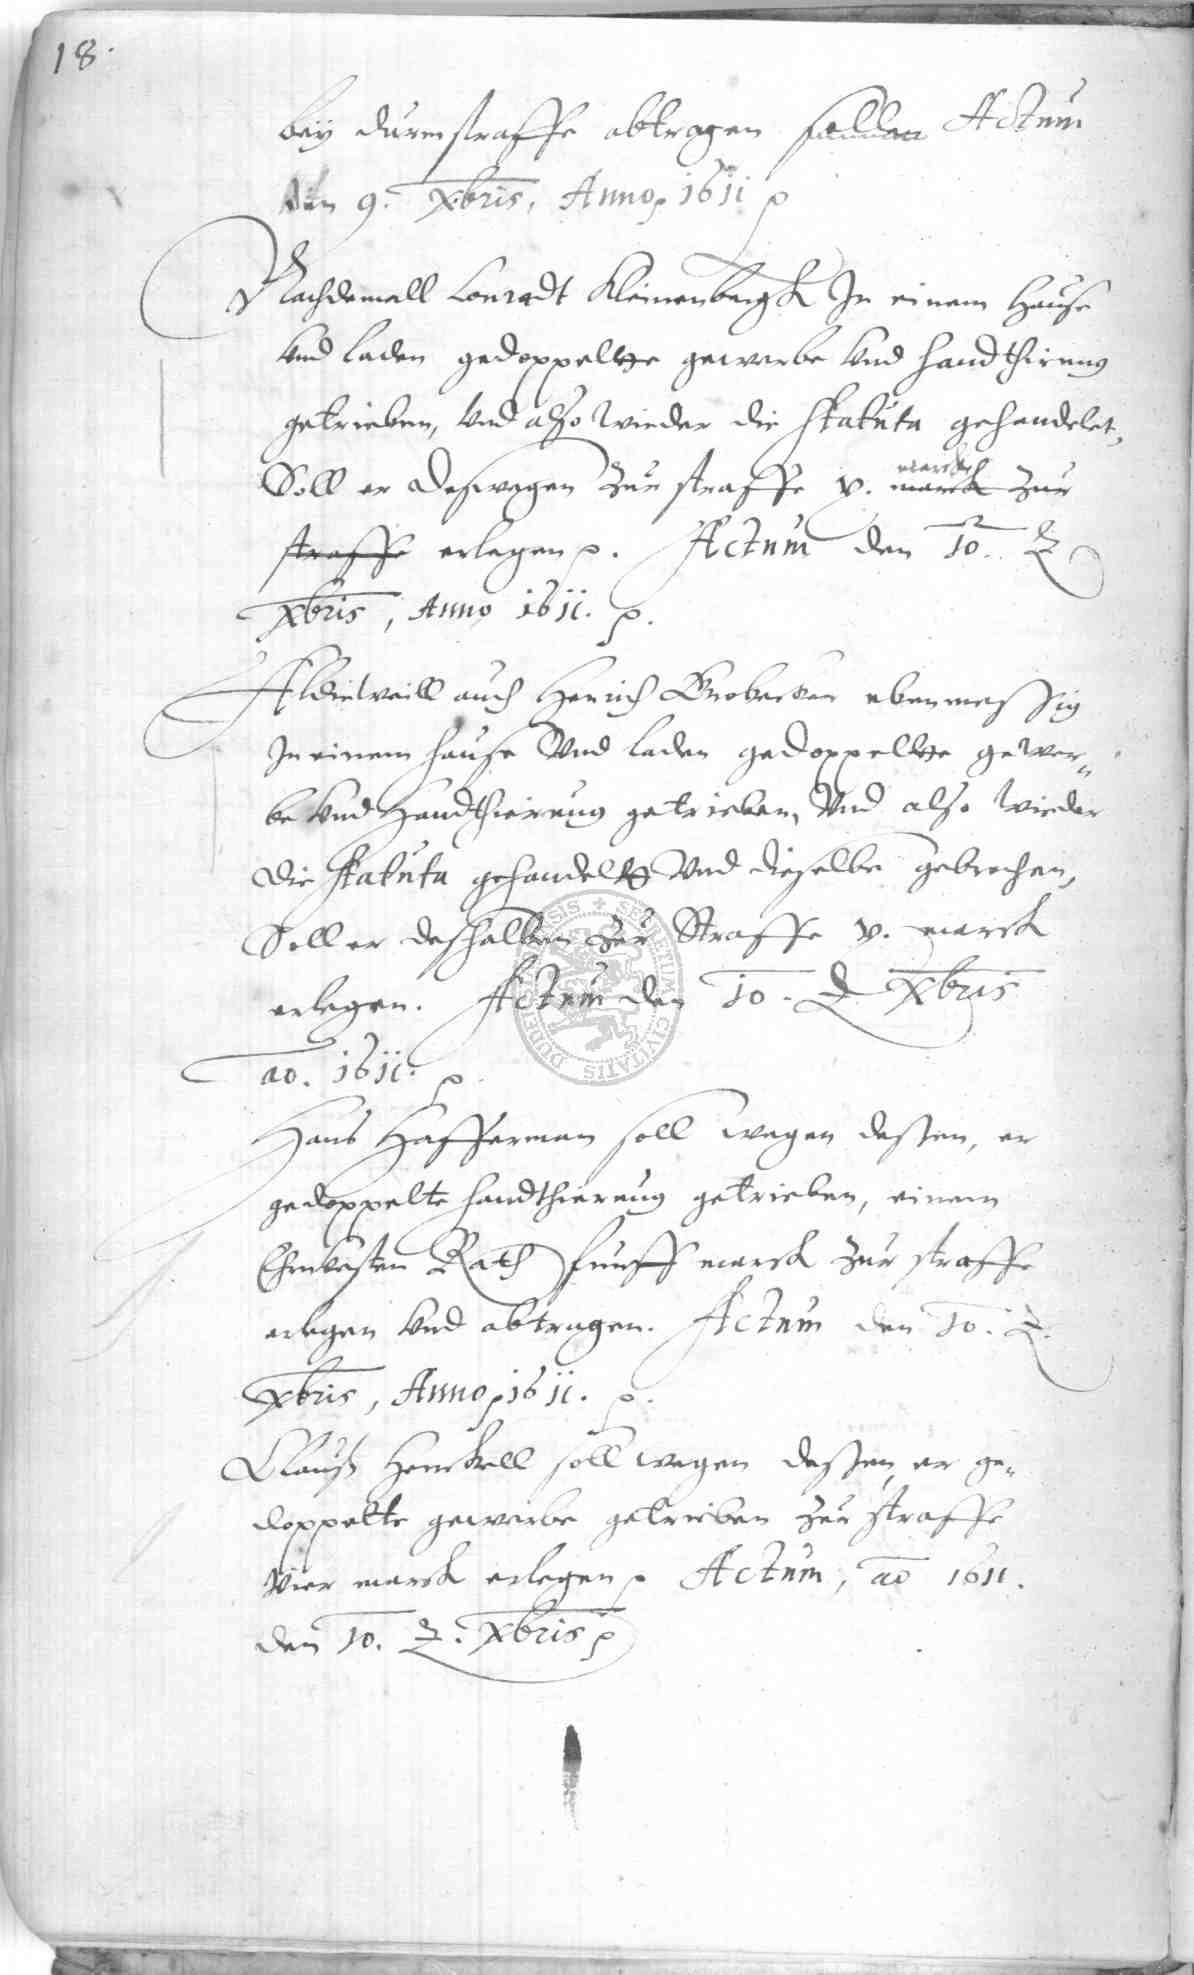 18.
beÿ durmstraffe abtragen sollen Actum
den 9. Xbris, Anno 1611 p
Nachdemall Conradt Kleinenbergk In einem Hause
Vnd laden gedoppeltte gewerbe Vnd handthirung
getrieben, Vnd also Wieder die statuta gehandelet,
Soll er deswegen zur straffe v. marck zur
marck
straffe erlegen p. Actum den 10.
Xbris, Anno 1611. p.
Aldieweill auch Henrich ebenmessig
In einem hause Vnd laden gedoppeltte gewer-
be Vnd Handthierung getrieben, Vnd also Wieder
die statuta gehandeltt Vnd dieselbe gebrochen,
Soll er deshalben zur Straffe v. marck
erlegen. Actum den 10. Xbris
ao. 1611. p
Hans Hafferman soll wegen dessen, er
gedoppelte handthierung getrieben, einem
Ehrnvesten Rath funff marck zur straffe
erlegen Vnd abtragen. Actum den 10.
Xbris, Anno 1611. p.
Clauß Henckell soll wegen dessen er ge-
doppelte gewerbe getrieben zur straffe
Vier marck erlegen p Actum, ao 1611.
den 10. Xbris p
SIGILLUM CIVITATIS DUDE